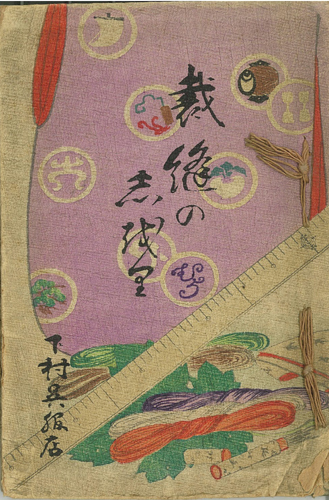 裁縫の
志越里
下村呉服店